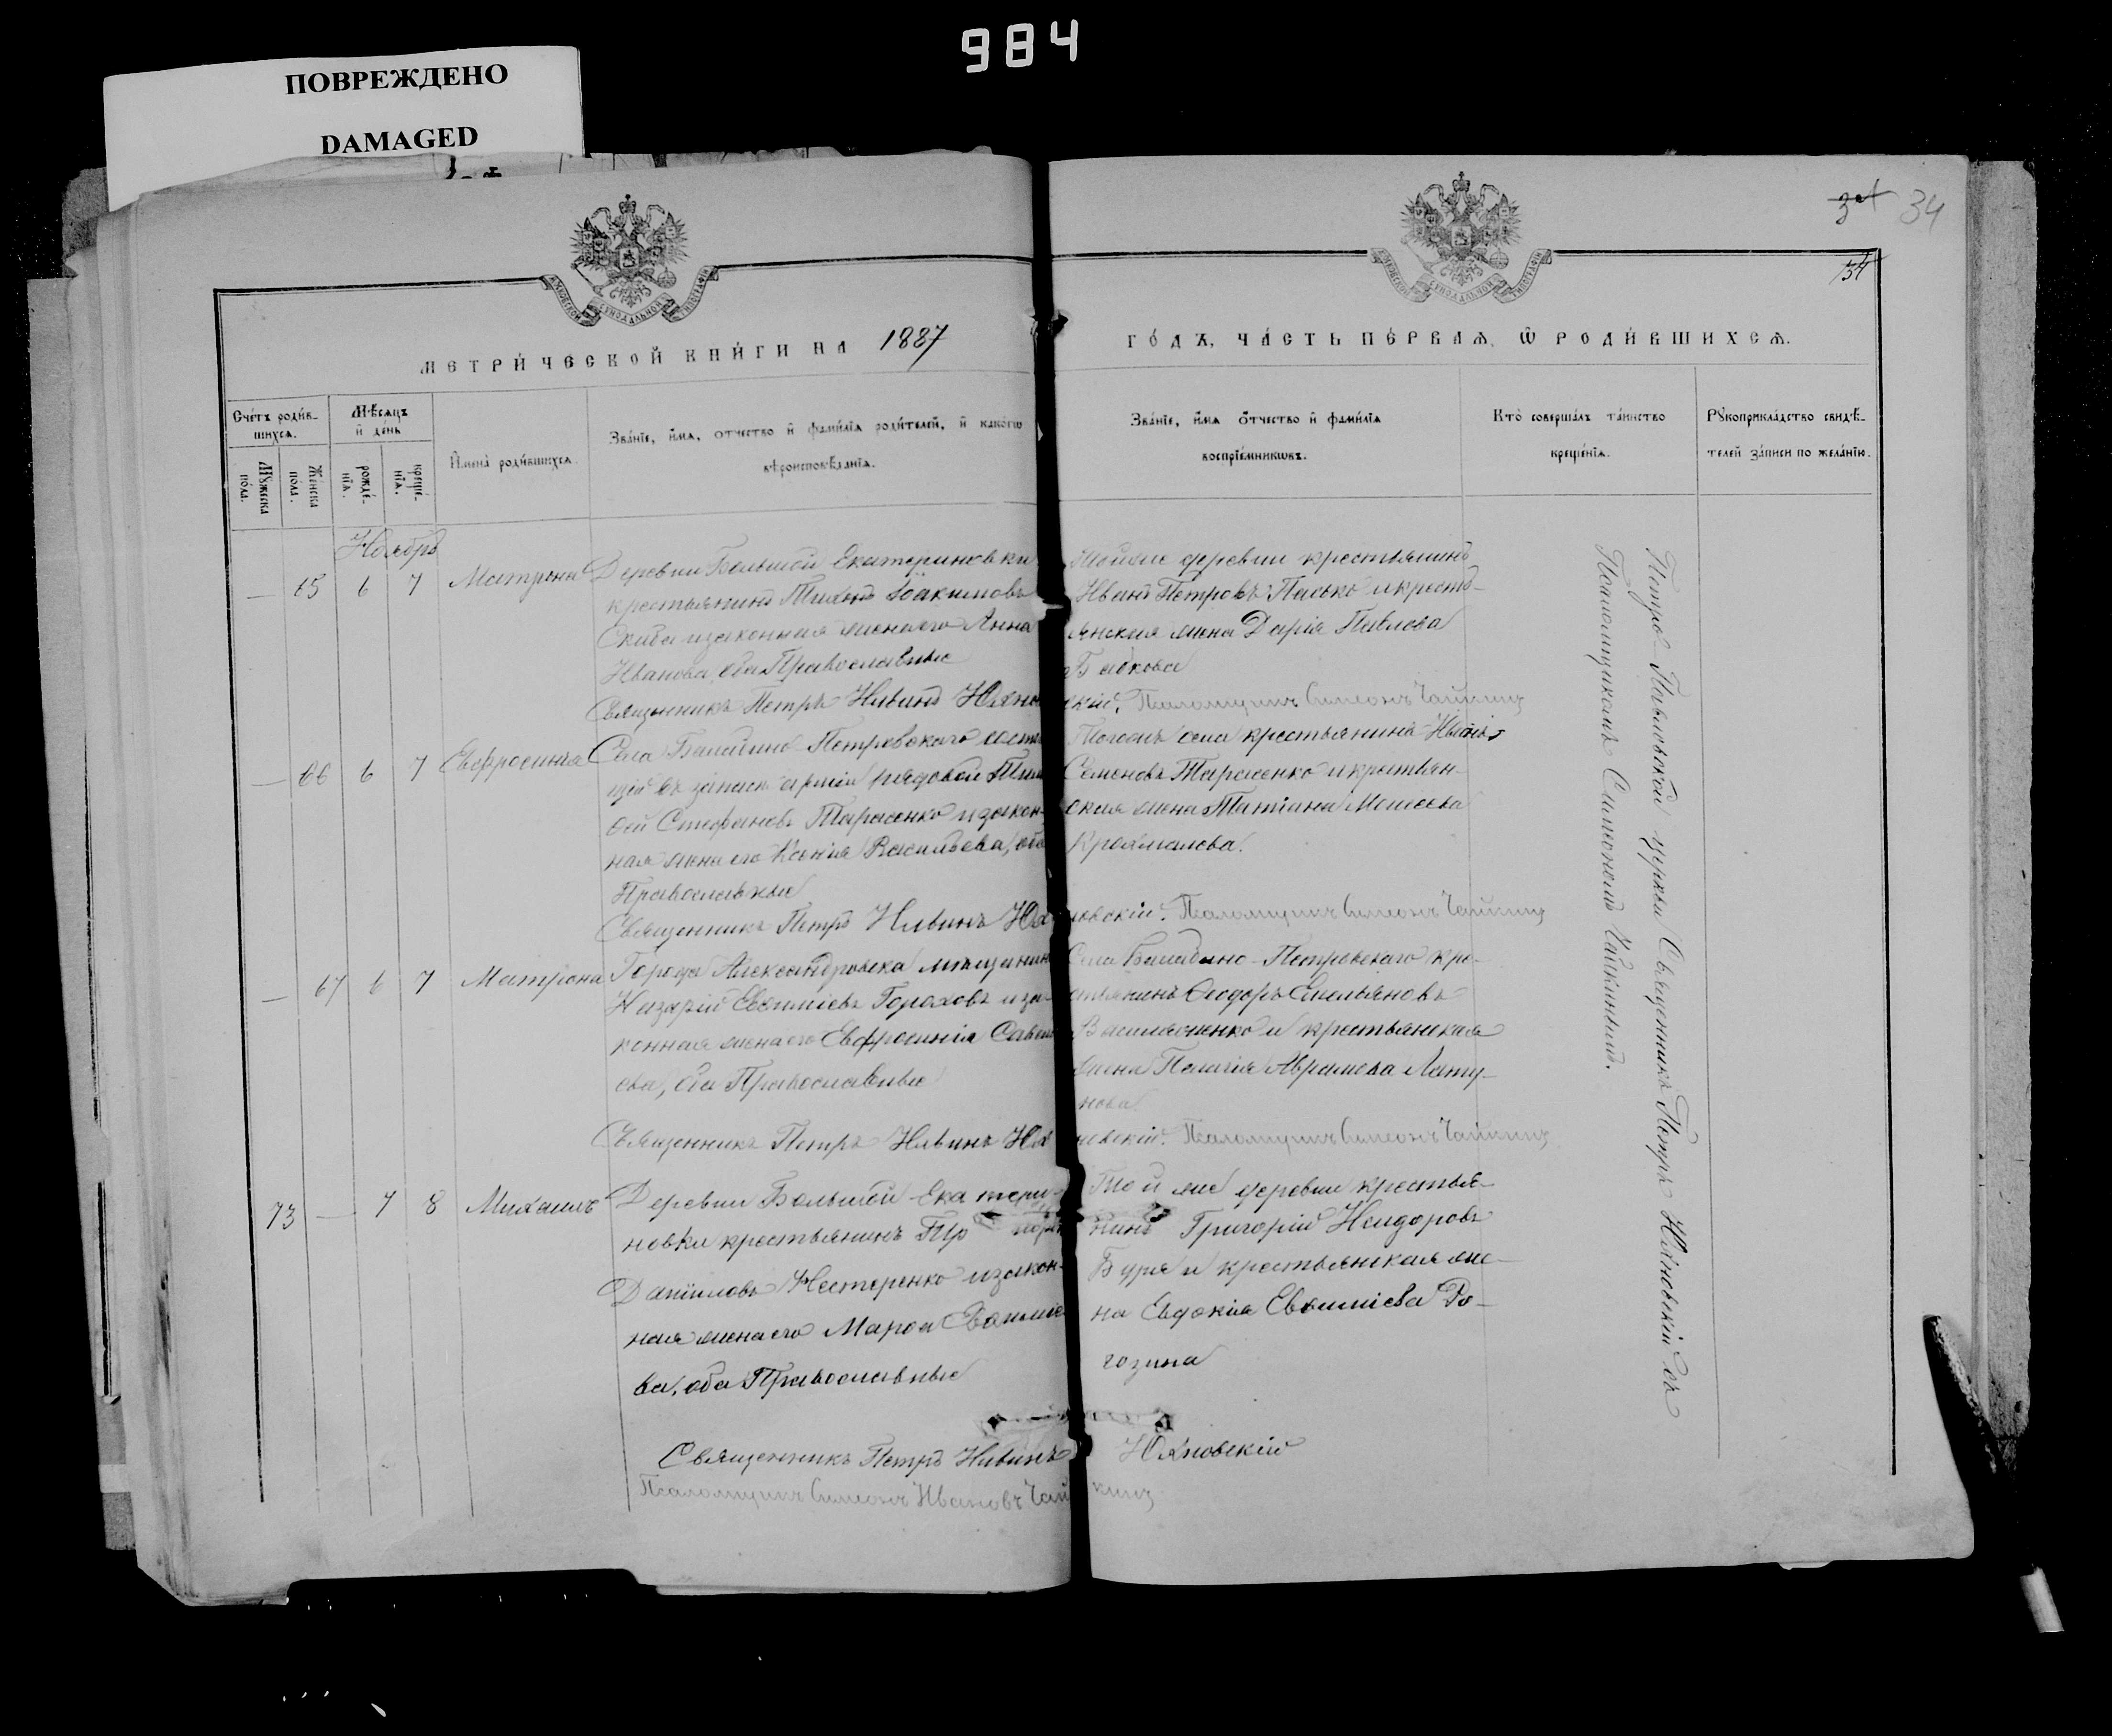 984
ПОВРЕЖДЕНО
DAMAGED
34
34
МЕТРИ́ЧЕСКОЙ КНИ́ГИ НА 1887
ГО́ДЪ, ЧА́СТЬ ПЕ́РВАѦ, Ѡ РОДИ́ВШИХСѦ.
Сче́тъ роди́в-
шихсѧ.
Мѣ́сѧцъ
и де́нь
Мꙋ́жеска
по́ла.
Же́нска
по́ла.
рожде́-
нїѧ.
креще́-
нїѧ.
Имена̀ роди́вшихсѧ.
Зва́нїе, и́мѧ, о́тчество и фами́лїѧ роди́телей, и како́гѡ
вѣроисповѣ́данїѧ.
Зва́нїе, и́мѧ о́тчество и фами́лїѧ
воспрїе́мникѡвъ.
Кто̀ соверша́лъ та́инство
креще́нїѧ.
Рꙋкоприкла́дство свидѣ́-
телей за́писи по жела́нїю.
Ноябрь
— 65 6 7 Матрона
Деревни Большой Екатериновки
крестьянинъ Тихонъ Іоакимовъ
Скиба и законная жена его Анна
Иванова, оба Православные
Тойже деревни крестьянинъ
Иванъ Петровъ Пасько и кресть-
янская жена Дарія Павлова
Бабкова
Священникъ Петръ Ильинъ Юхновскій. Псаломщикъ Симеонъ Чайкинъ
— 66 6 7 Евфросинія
Села Балабино-Петровскаго состо
щій въ запасѣ арміи рядовой Тим
ѳей Стефановъ Тарасенко и закон-
ная жена его Ксенія Васильева, оба
Православные
Тогожъ села крестьянинъ Иванъ
Семеновъ Тарасенко и крестьян-
ская жена Татіана Моисеева
Крохмалева.
Священникъ Петръ Ильинъ Юхновскій. Псаломщикъ Симеонъ Чайкинъ
— 67 6 7 Матрона
Города Александровска мѣщанинъ
Назарій Евѳиміевъ Гороховъ и за-
конная жена его Евфросинія Савель
ева, оба Православные
Села Балабино-Петровскаго кре-
стьянинъ Ѳеодоръ Емельяновъ
Василенко и крестьянская
жена Пелагія Аврамова Лату-
нова
Священникъ Петръ Ильинъ Юхновскій. Псаломщикъ Симеонъ Чайкинъ
73 — 7 8 Михаилъ
Деревни Большой Екатери-
новки крестьянинъ
Даниловъ Нестеренко и закон-
ная жена его Марѳа Евѳиміе
ва, оба Православные
Той же деревни крестья-
нинъ Григорій Исидоровъ
Буря и крестьянская же-
на Евдокія Евѳиміева Ро-
гозина
Священникъ Петръ Ильинъ Юхновскій
Псаломщикъ Симеонъ Ивановъ Чайкинъ
Петро-Павловской церкви Священникъ Петръ Юхновскій съ
Псаломщикомъ Симеономъ Чайкинымъ.